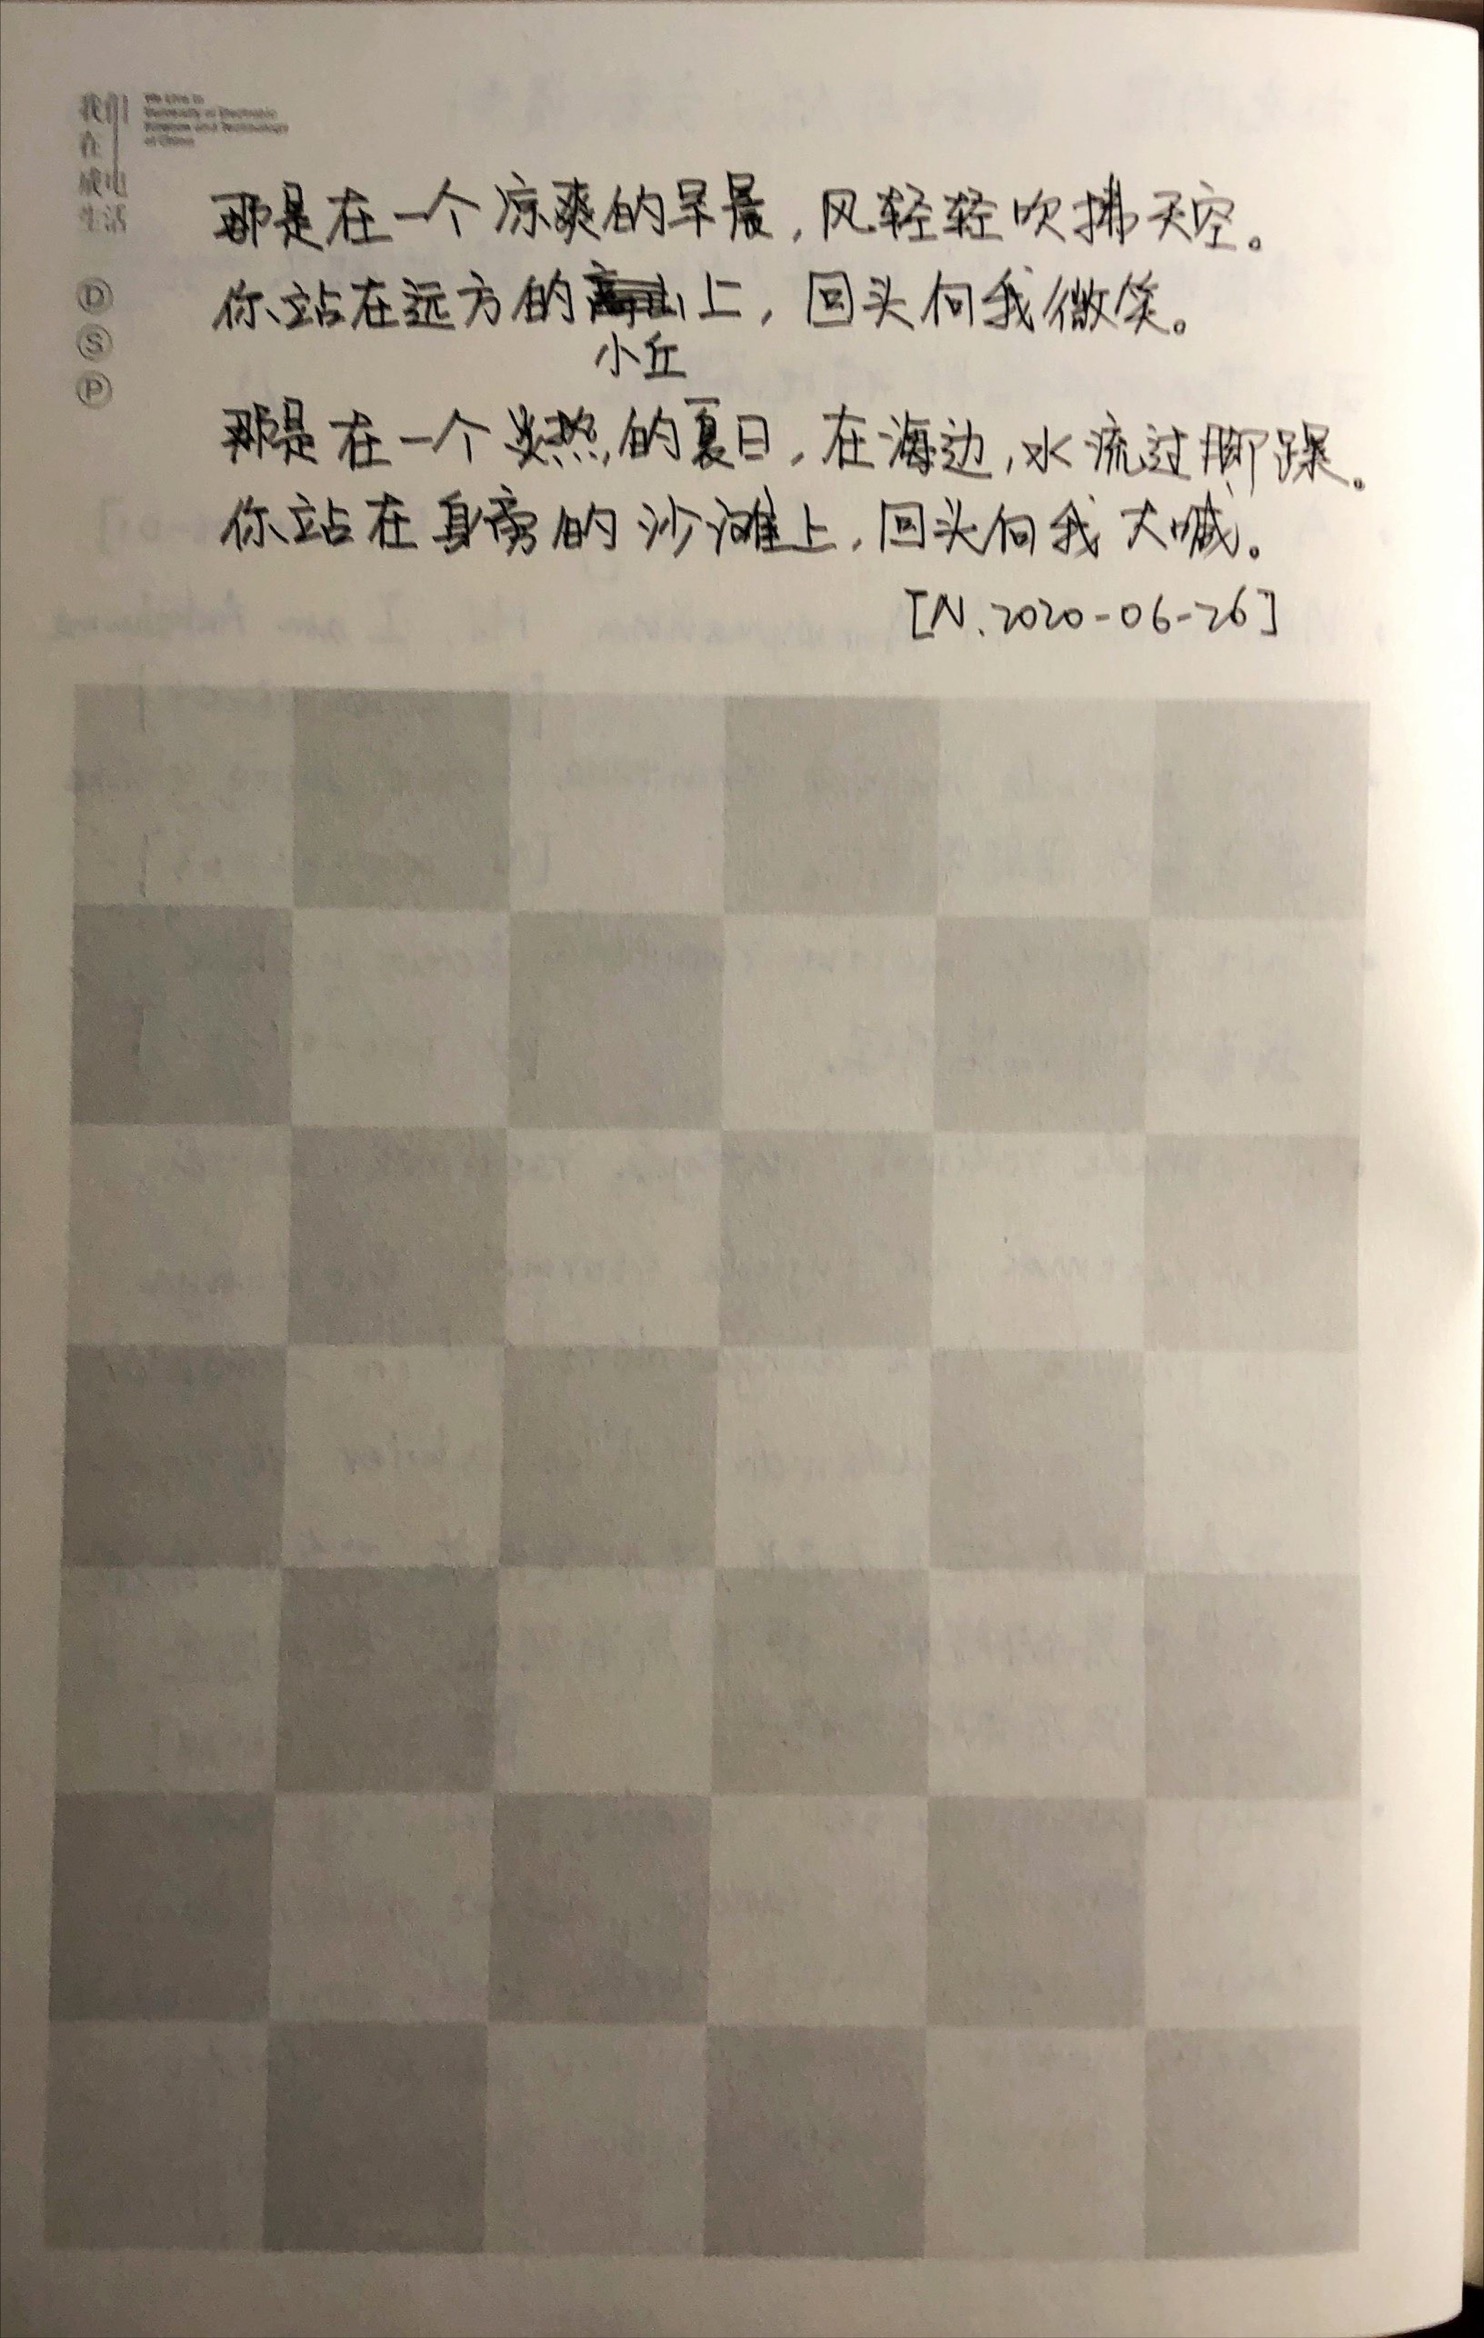 我们
在
成电
生活
We Live in
University of Electronic
Science and Technology
of China
D
S
P
那是在一个凉爽的早晨，风轻轻吹拂天空。
你站在远方的高山上，回头向我微笑。
小丘
那是在一个炎热的夏日，在海边，水流过脚踝。
你站在身旁的沙滩上，回头向我大喊。
[N. 2020-06-26]